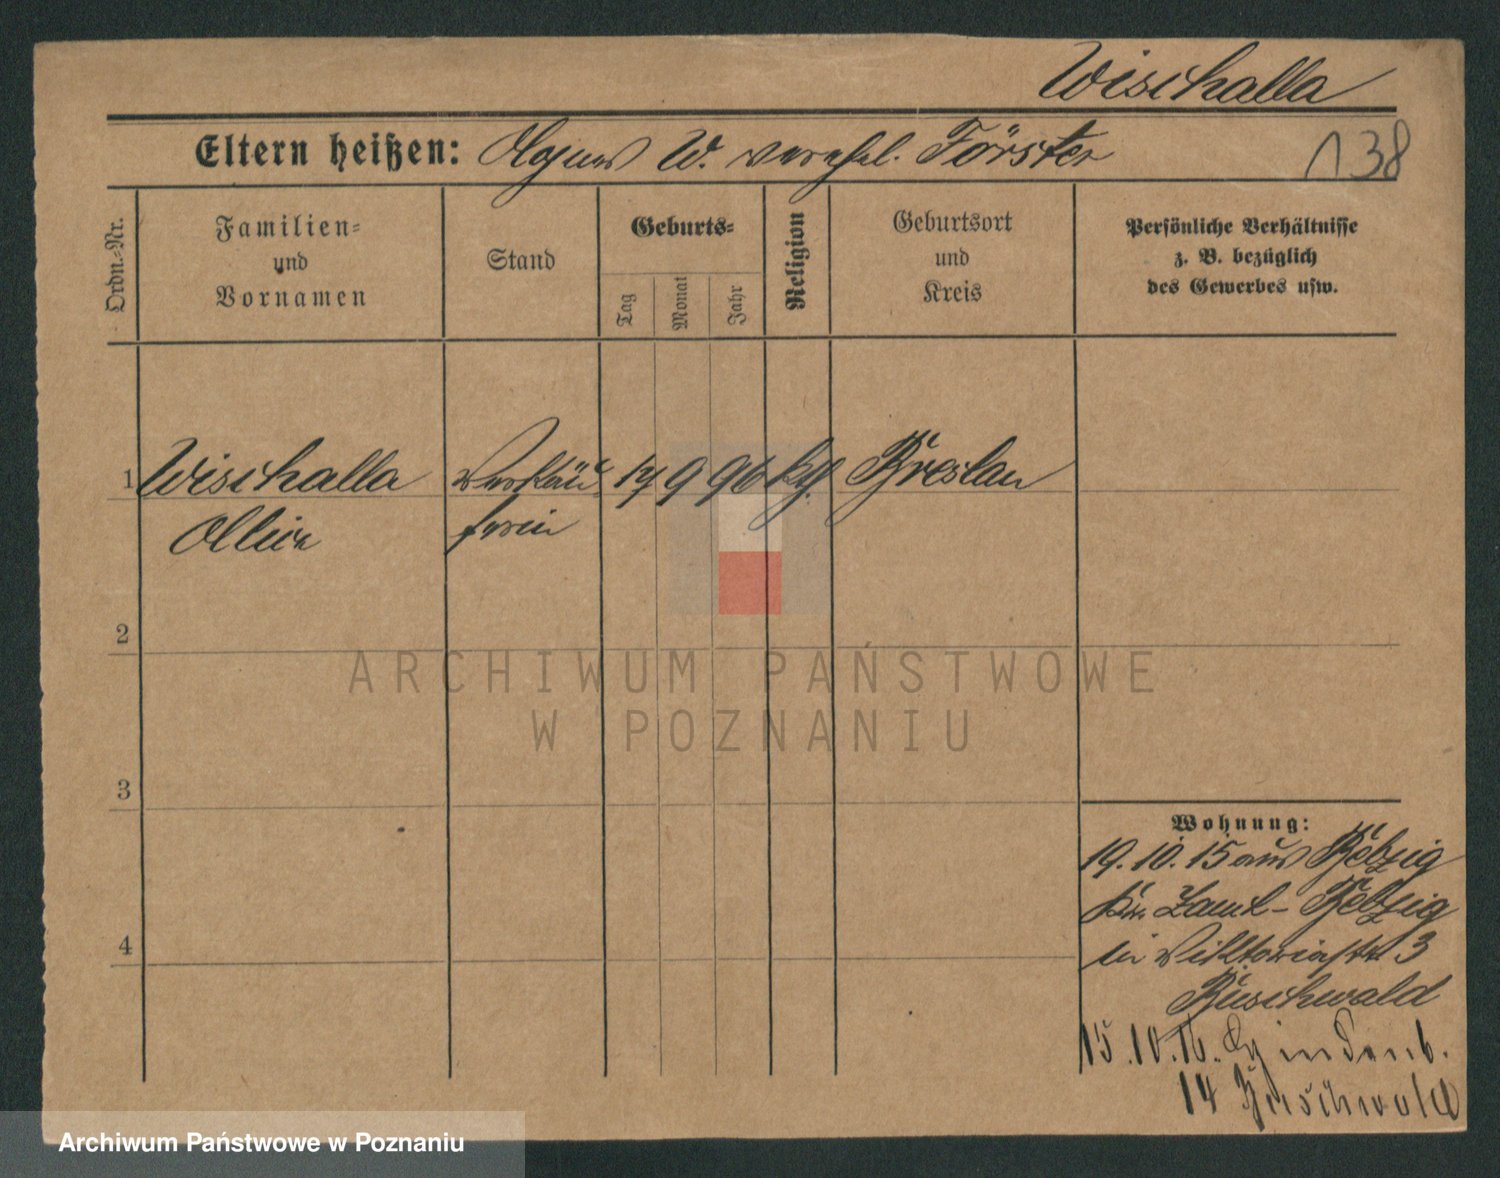 Wischalla
Eltern heißen: Agnes W. verehel. Förster
138
Ordn.-Nr.
Familien-
und
Vornamen
Stand
Geburts-
Tag
Monat
Jahr
Religion
Geburtsort
und
Kreis
Persönliche Verhältnisse
z. B. bezüglich
des Gewerbes usw.
1 Wischalla Verkäu 14 9 96 kth. Breslau
ferin
2
3
4
Wohnung:
19.10.15 aus
Kr.
in Viktoriastr 3
Buschwald
15.10.16. in
14 Buschwald
ARCHIWUM PAŃSTWOWE
W POZNANIU
Archiwum Państwowe w Poznaniu